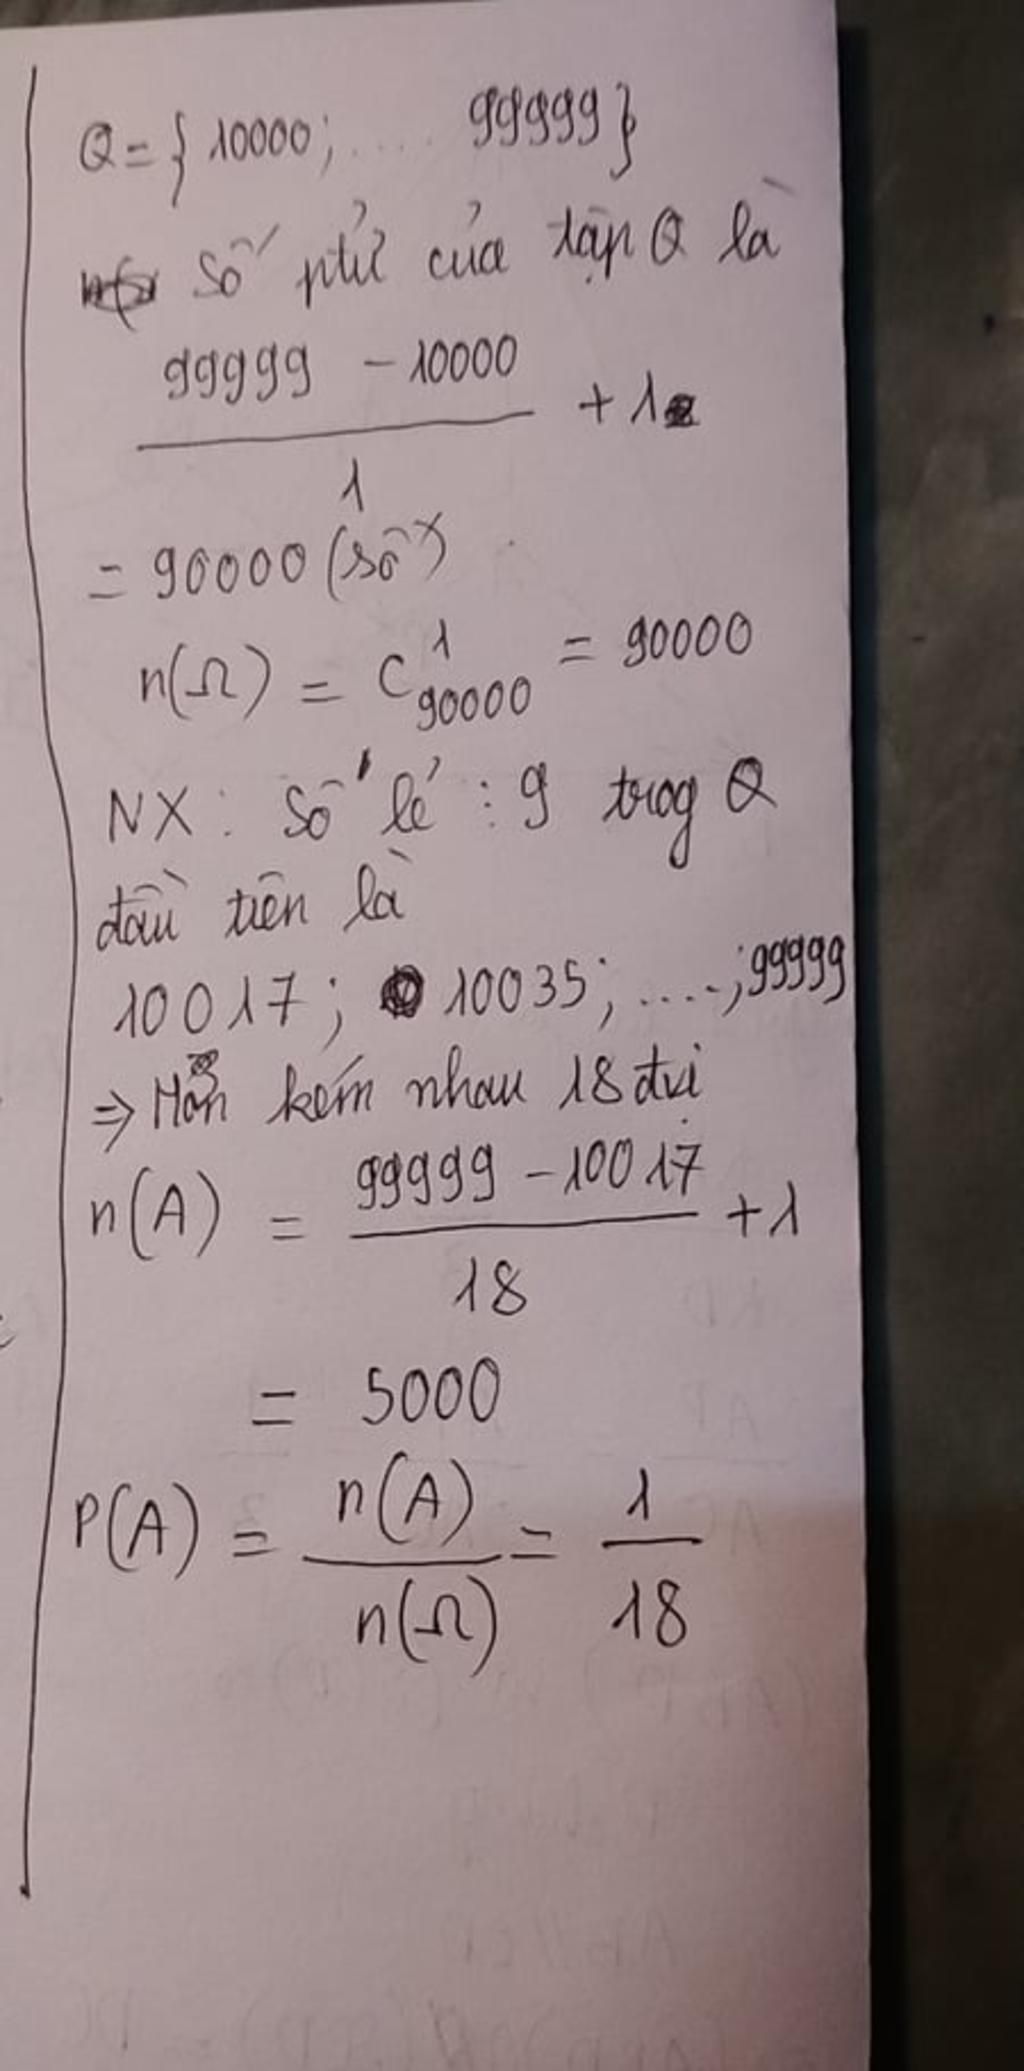 Q = { 10000; .... 99999 }
Số ptử của tập Q là
99999 - 10000
+ 1
1
= 90000 (số)
n(Ω) = C 1 90000 = 90000
NX : Số lẻ : 9 trog Q
đầu tiên là
10017; 10035; ....; 99999
⇒ Hơn kém nhau 18 đvị
n(A) = 99999 - 10017 + 1
18
= 5000
P(A) = n(A) = 1
n(Ω) 18